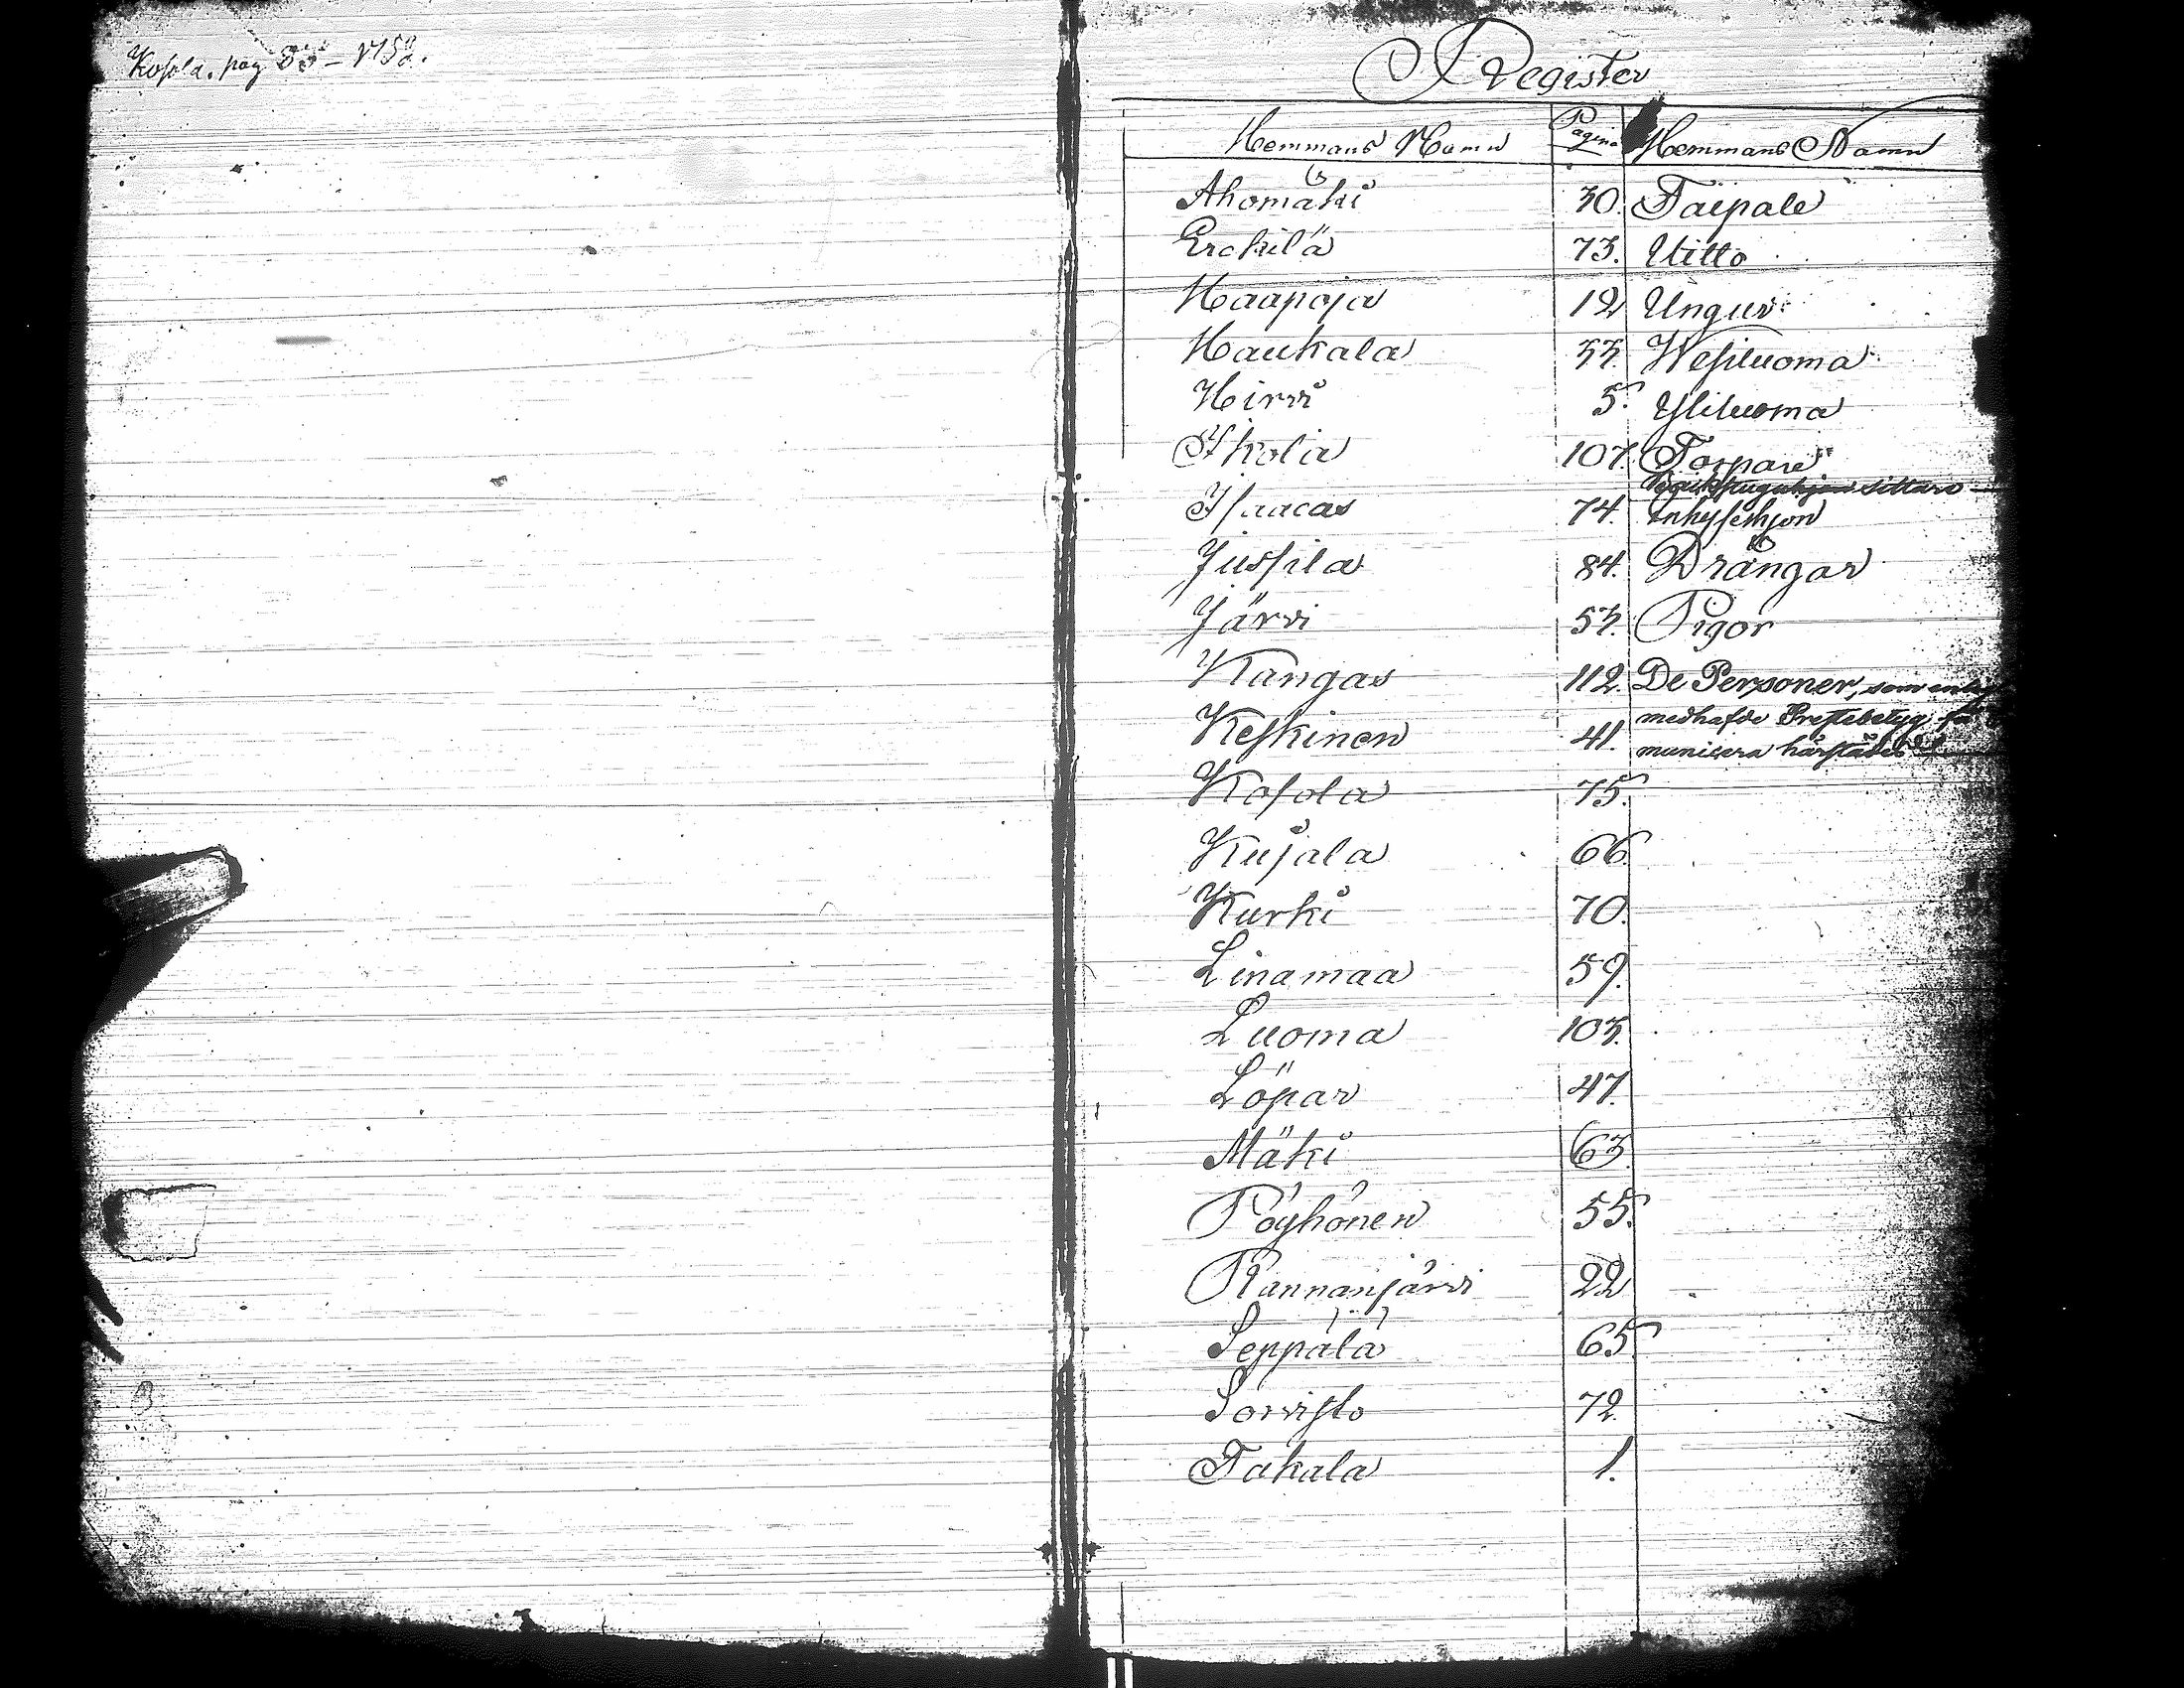 Kosola. pag 85 –
Register
Hemmans Namn Pagina Hemmans Namn
Ahomäki 30. Taipale
Erckilä 73. Uitto
Haapoja 12 Ungur
Haukala 33. Wesiluoma
Hirvi 5. Yliluoma
Ikola 107. Torpare
Isaacas 74. Inhyseshjon
Jussila 84. Drängar
Järvi 53. Pigor
Kangas 112. De Personer, som
Keskinen 41. medhafde Prestebetyg
Kosola 75. municera härstädes
Kujala 66.
Kurki 70.
Linamaa 59.
Luoma 103.
Löpar 47.
Mäki 63.
Pöyhönen 55.
Rannanjärvi 22
Seppälä 65
Sorvisto 72.
Takala 1.